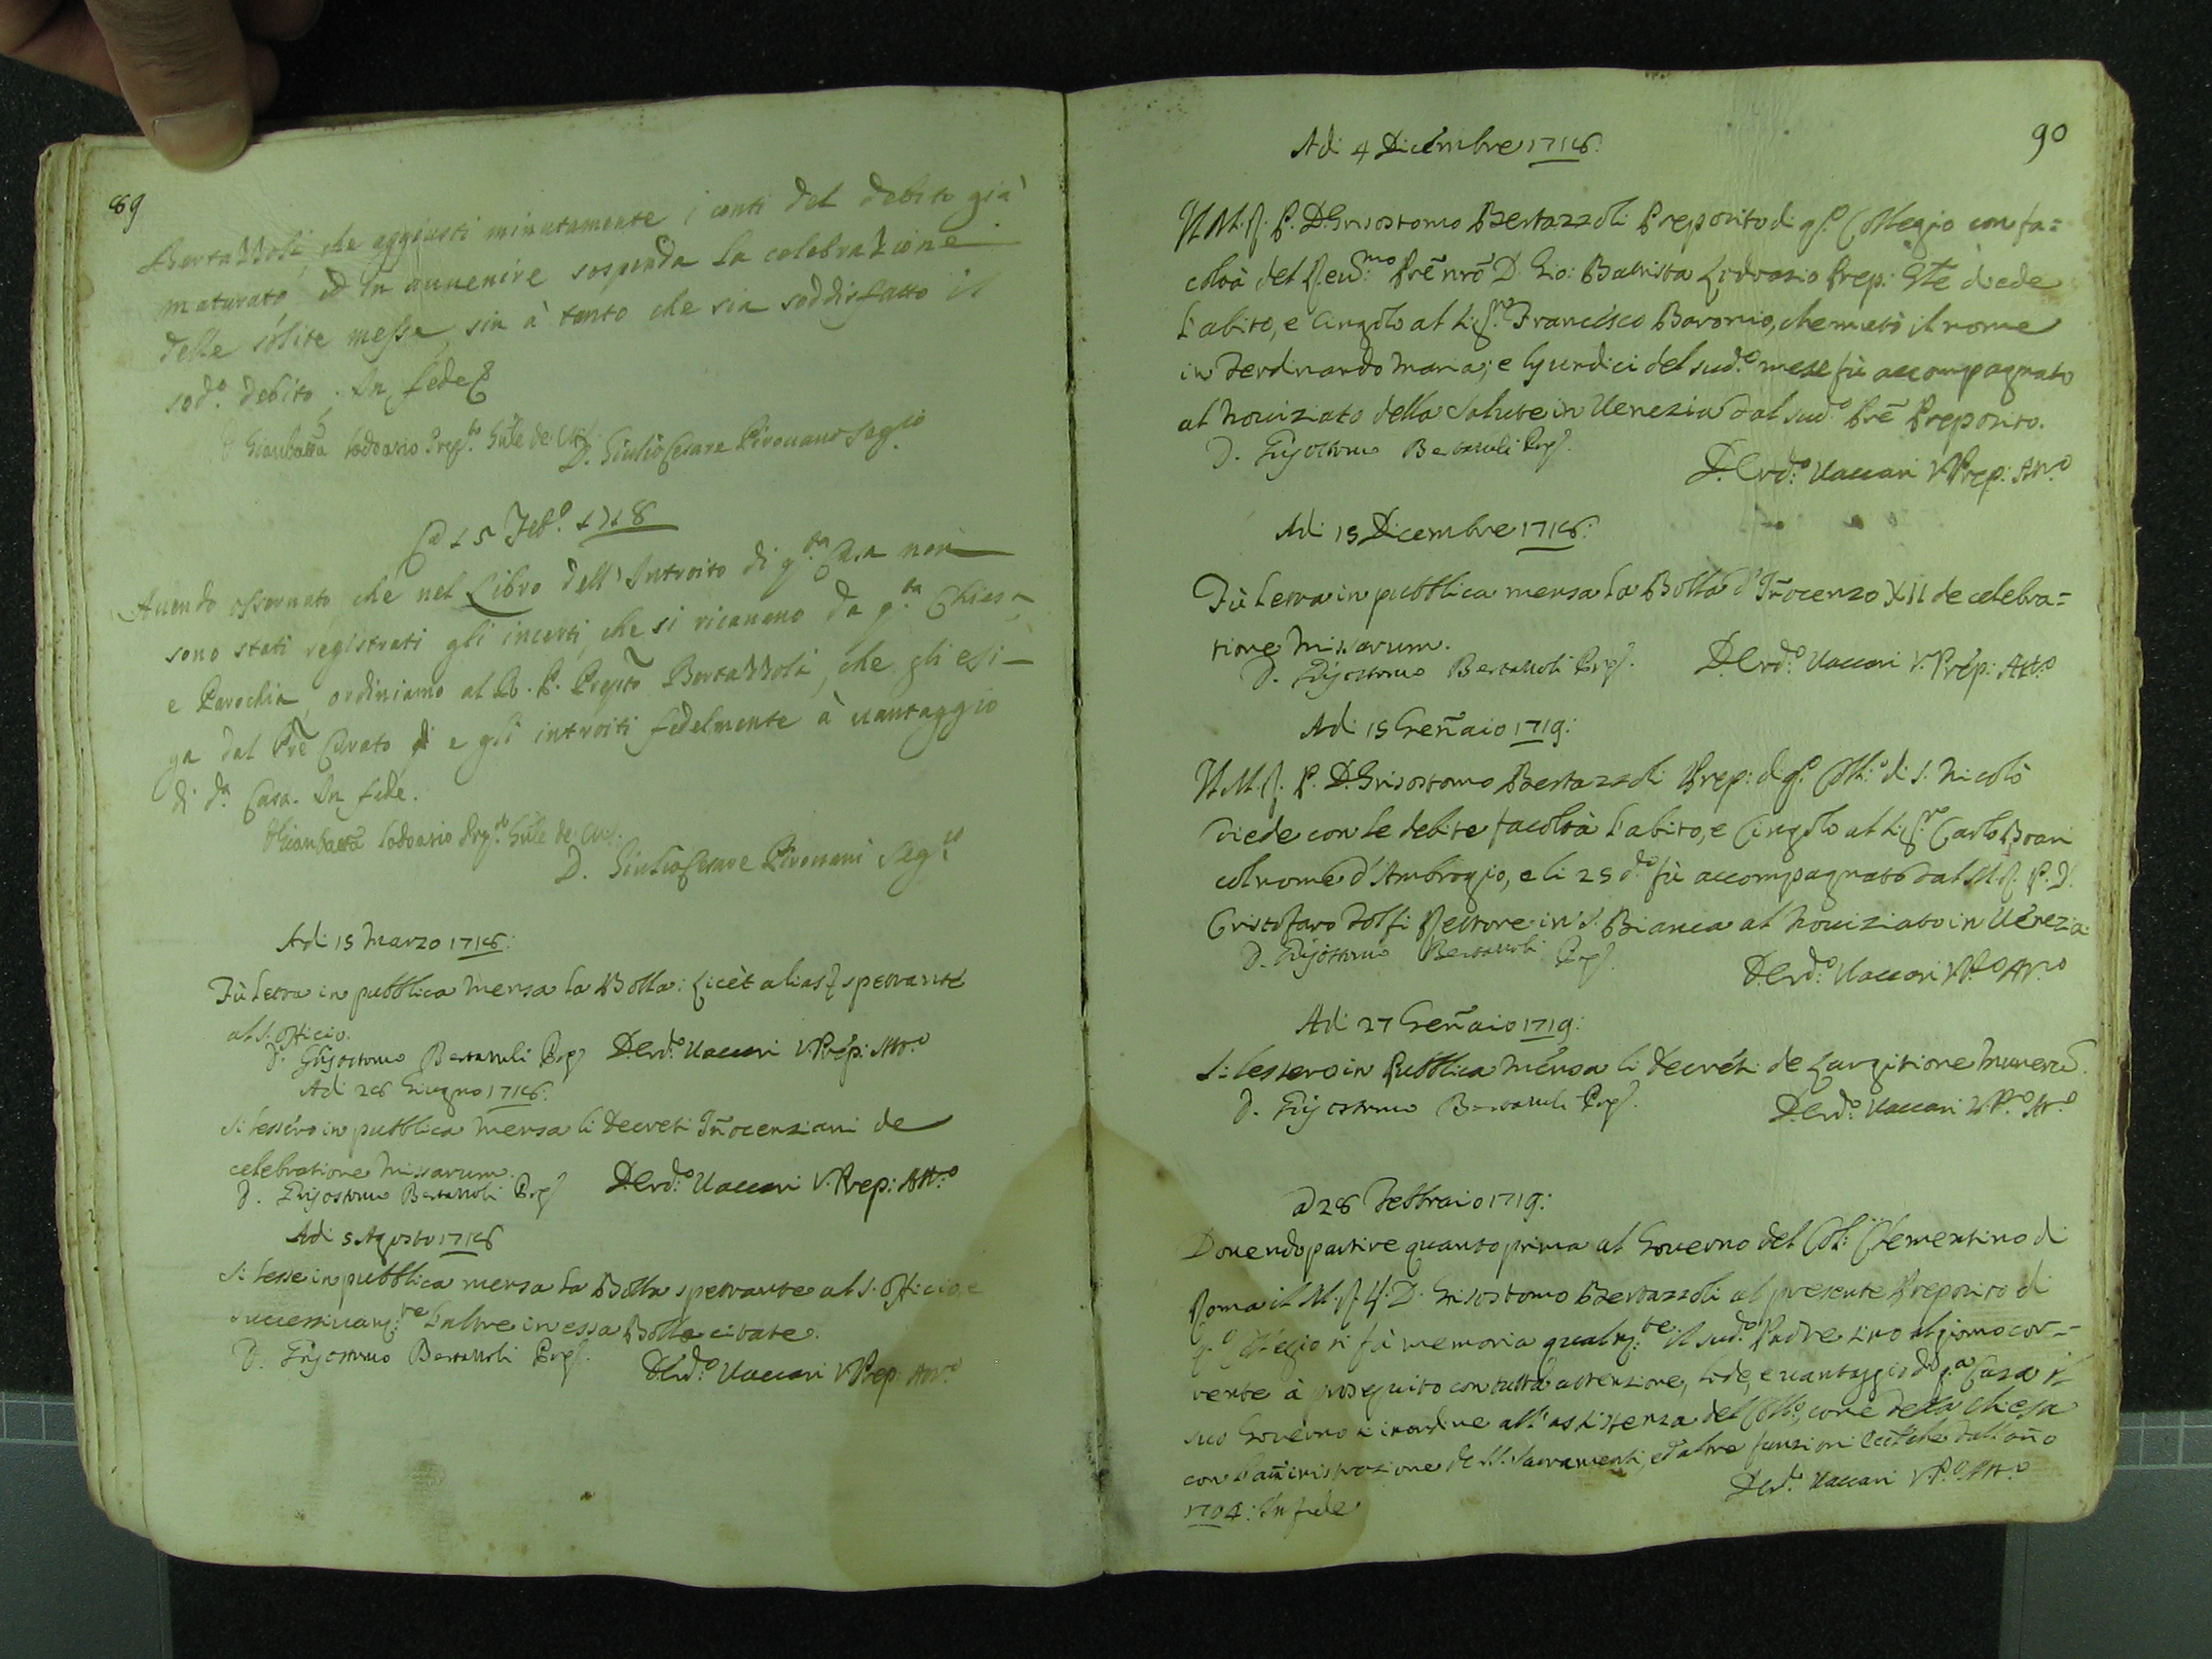 89
Bertazzoli che aggiusti minutamente i conti del debito già
maturato, ed in auuenire sospenda la celebrazione
delle sólite messe, sin à tanto che sia soddisfatto il
sod.º debito. In fede
Gianbatta Lodovasio Prep.to Gñle de
D. Giulio Cesare Pirouano Seg.rio
15 Feb.º 1718
Auendo osseruato, che nel Libro dell'Introito di q.ta Casa non
sono stati registrati gli incerti, che si ricauano da q.ta Chiesa
e Parochia, ordiniamo al R. P. Prep̃to Bertazzoli, che gli esi-
ga dal Prẽ Curato e gli introiti fedelmente à uantaggio
di d.ª Casa. In fede.
Gianbatta Lodovasio Prep.to Gñle de
D. Giulio Cesare Pirouani Seg.rio
Adi 15 Marzo 1718:
Fù letta in pubblica mensa la Bolla: Licèt alias spettante
al S. Officio.
D. Grisostomo Bertazzoli Prep. D. Erd.º Uaccari V. Prep: Att.º
Adi 28 Giugno 1718:
Si lessero in pubblica mensa li Decreti Iñocenziani de
celebratione Missarum.
D. Grisostomo Bertazzoli Prep. D. Erd.º Uaccari V. Prep: Att.º
Adi 5 Agosto 1718
Si lesse in pubblica mensa la Bolla spettante al S. Officio, e
successiuam.te l'altre in essa Bolla citate.
D. Grisostomo Bertazzoli Prep. D. Erd.º Uaccari V. Prep: Att.º
90
Adi 4 Dicembre 1718:
Il M. R. P. D. Grisostomo Bertazzoli Preposito di q.º Collegio con fa=
coltà del R.eud:mo Prẽ nrõ D. Gio: Battista Lodovasio Prep: Gñle diede
l'abito, e Cingolo al Sig.re Francesco Baronio, che mutò il nome
in Ferdinando Maria; e li quindici del sud.º mese fù accompagnato
al Nouiziato della Salute in Uenezia dal sud.º Prẽ Preposito.
D. Grisostomo Bertazzoli Prep.
D. Erd.º Uaccari V. Prep: Att.º
Adi 15 Dicembre 1718:
Fù letta in pubblica mensa la Bolla d'Iñocenzo XII de celebra=
tione Missarum.
D. Grisostomo Bertazzoli Prep. D. Erd.º Uaccari V. Prep: Att.º
Adi 15 Geñaio 1719:
Il M. R. P. D. Grisostomo Bertazzoli Prep: di q.º Coll.º di S. Nicolò
diede con le debite facoltà l'abito, e Cingolo al Sig.r Carlo
col nome d'Ambrogio, e li 25 d.º fù accompagnato dal M. R. P. D.
Cristofaro Rettore in S. Bianca al Nouiziato in Uenezia.
D. Grisostomo Bertazzoli Prep.
D. Erd.º Uaccari V. P.º Att.º
Adi 27 Geñaio 1719:
Si lessero in Pubblica mensa li decreti de Largitione Munerũ.
D. Grisostomo Bertazzoli Prep.
D. Erd.º Uaccari V. P.º Att.º
a 28 Febbraio 1719:
Douendo partire quanto prima al Gouerno del Col: Clementino di
Roma il M. R. P. D. Grisostomo Bertazzoli al presente Preposito di
q.º Collegio si fà memoria qualm.te il sud.º Padre sino al giorno cor-
rente à proseguito con tutta attenzione, lode, e uantaggio di q.ª Casa il
suo Gouerno inordine all'assistenza del Coll.º, come della Chiesa
con l'am̃inistrazione de SS. Sacramenti, ed altre funzioni dall'año
1704: In fede
D. Erd.º Uaccari V. P.º Att.º